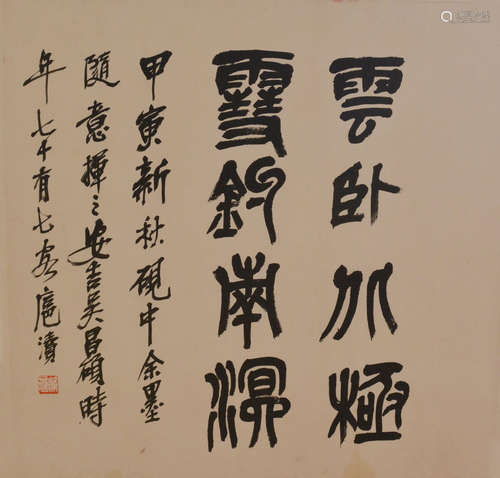 雲卧北極
雪釣南溟
甲寅新秋硯中余墨
隨意揮之安吉吴昌碩時
年七十有七客扈瀆